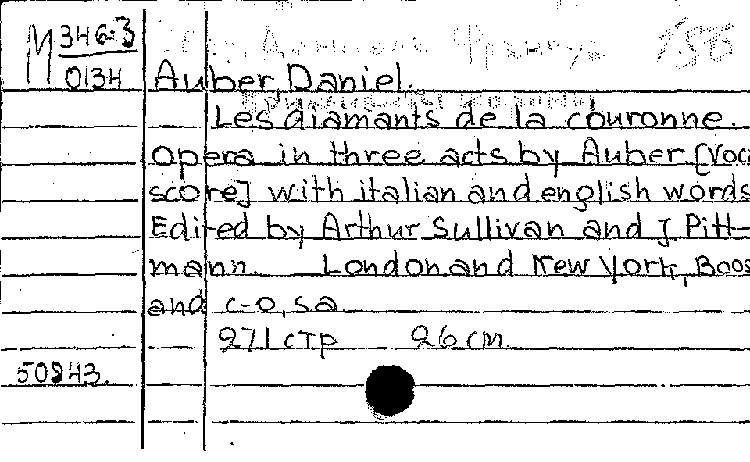 M 346-3
0134 Auber, Daniel.
Les diamants de la couronne.
opera in three acts by Auber [Voc
score] with italian and english words
Edited by Arthur Sullivan and J. Pitt-
mann. London and New York, Boos
and C-o, s.a.
271 стр 26 см.
50843.